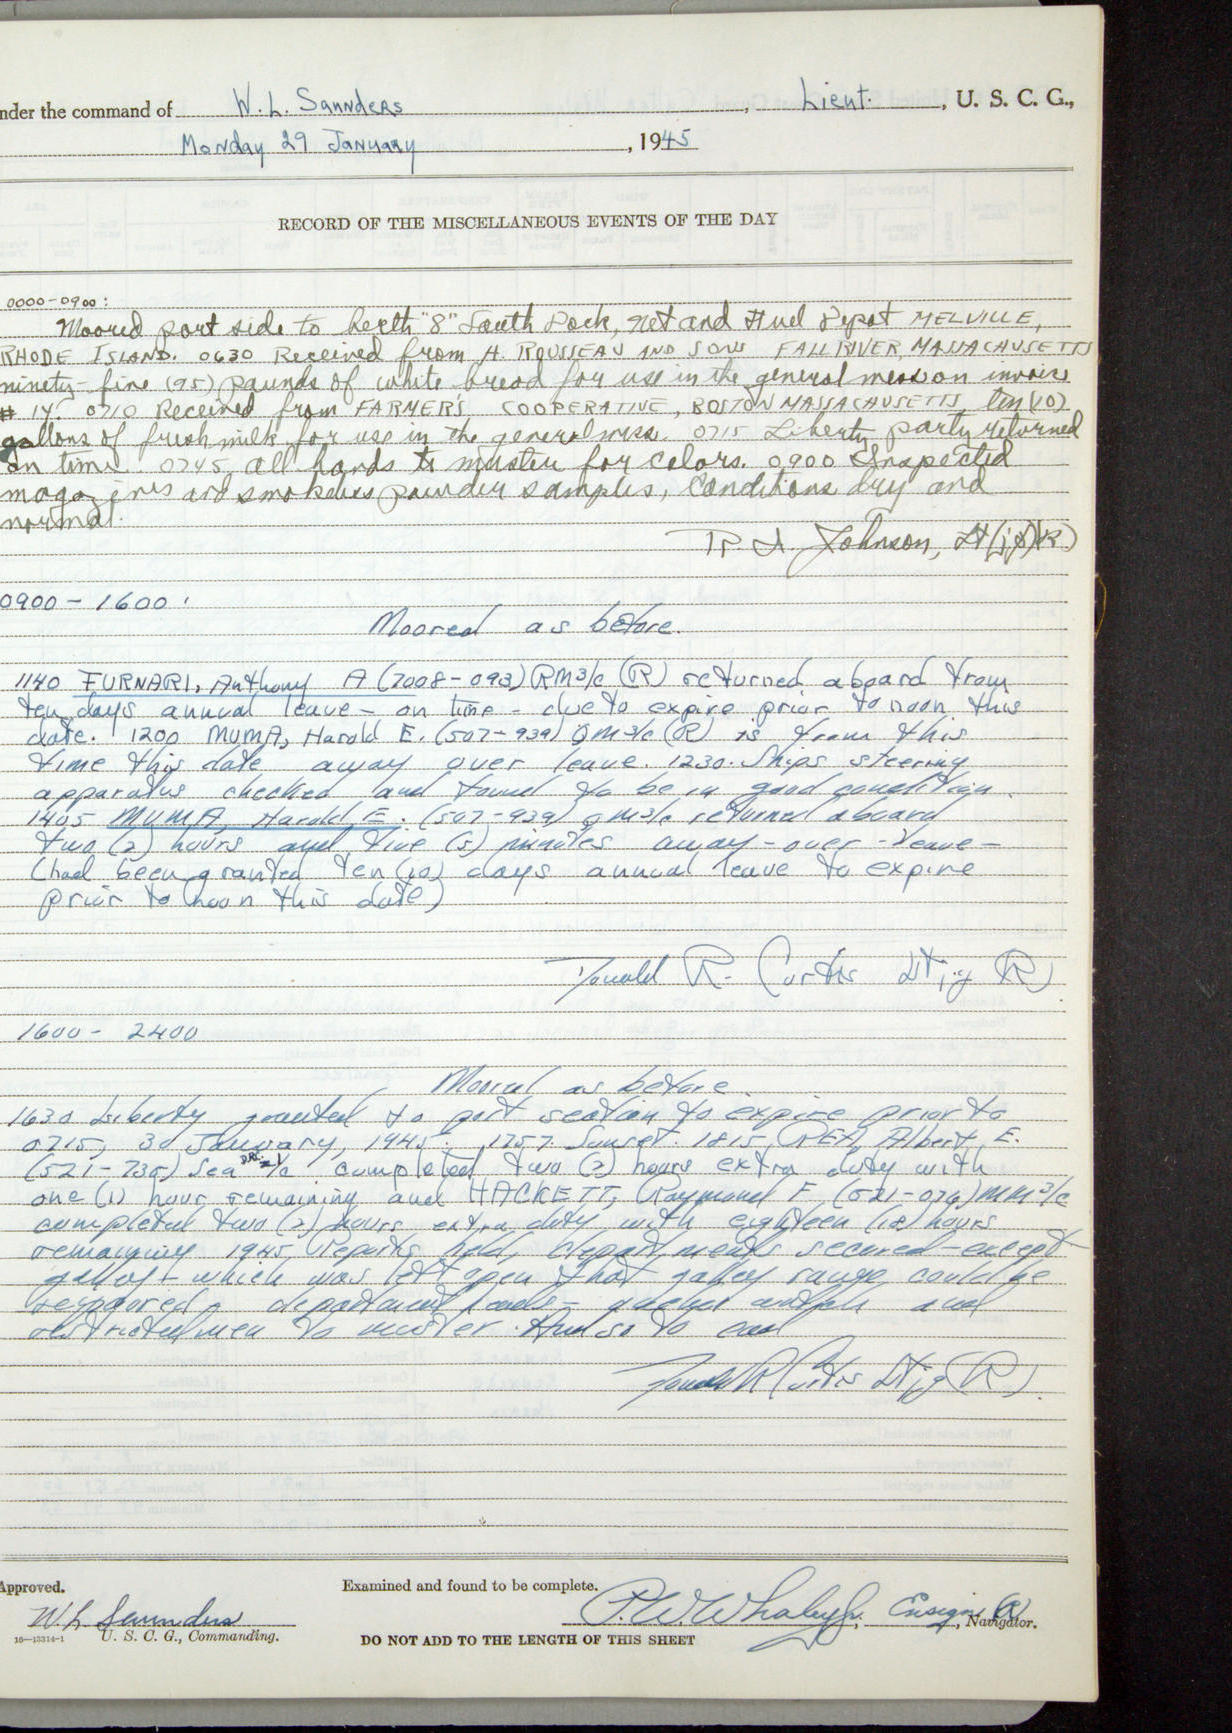 nder the command of W. L. Saunders, Lieut., U. S. C. G.,
Monday 29 January, 1945
RECORD OF THE MISCELLANEOUS EVENTS OF THE DAY
0000-0900:
Moored port side to berth "8" South Dock, Net and Fuel Depot MELVILLE,
RHODE ISLAND. 0630 Received from H. ROUSSEAU AND SONS FALL RIVER, MASSACHUSETTS
ninety-five (95) pounds of white bread for use in the general mess on invoice
# 14. 0710 Received from FARMER'S COOPERATIVE, BOSTON MASSACHUSETTS ten (10)
gallons of fresh milk for use in the general mess. 0715 Liberty party returned
on time. 0745 all hands to muster for colors. 0900 Inspected
magazines and smokeless powder samples, Conditions dry and
normal.
Johnson, Lt(jg)(R)
0900 - 1600:
Moored as before.
1140 FURNARI, Anthony A (7008-093) RM3/c (R) returned aboard from
ten days annual leave - on time - due to expire prior to noon this
date. 1200 MUMA, Harold E. (507-939) QM3/c (R) is from this
time this date away over leave. 1230. Ships steering
apparatus checked and found to be in good condition.
1405 MUMA, Harold E. (507-939) QM3/c returned aboard
two (2) hours and five (5) minutes away - over - leave -
(had been granted ten (10) days annual leave to expire
prior to noon this date)
Donald R. Curtis Lt jg (R)
1600 - 2400
Moored as before
1630 Liberty granted to port section to expire prior to
0715, 30 January, 1945. 1757. Sunset. 1815, REA, Albert, E.
(521-735) Sea 1/c completed two (2) hours extra duty with
one (1) hour remaining and HACKETT, Raymond F. (621-076) MM3/c
completed two (2) hours extra duty with eighteen (18) hours
remaining 1945 Reports held, departments secured - except
galley - which was left open that galley range could be
repaired, department heads - watch and
restricted men to muster. And so to end
Donald R Curtis Lt jg (R)
Approved. Examined and found to be complete.
W. L. Saunders P. W. Whaley Jr., Ensign (R), Navigator.
16-13314-1 U. S. C. G., Commanding. DO NOT ADD TO THE LENGTH OF THIS SHEET